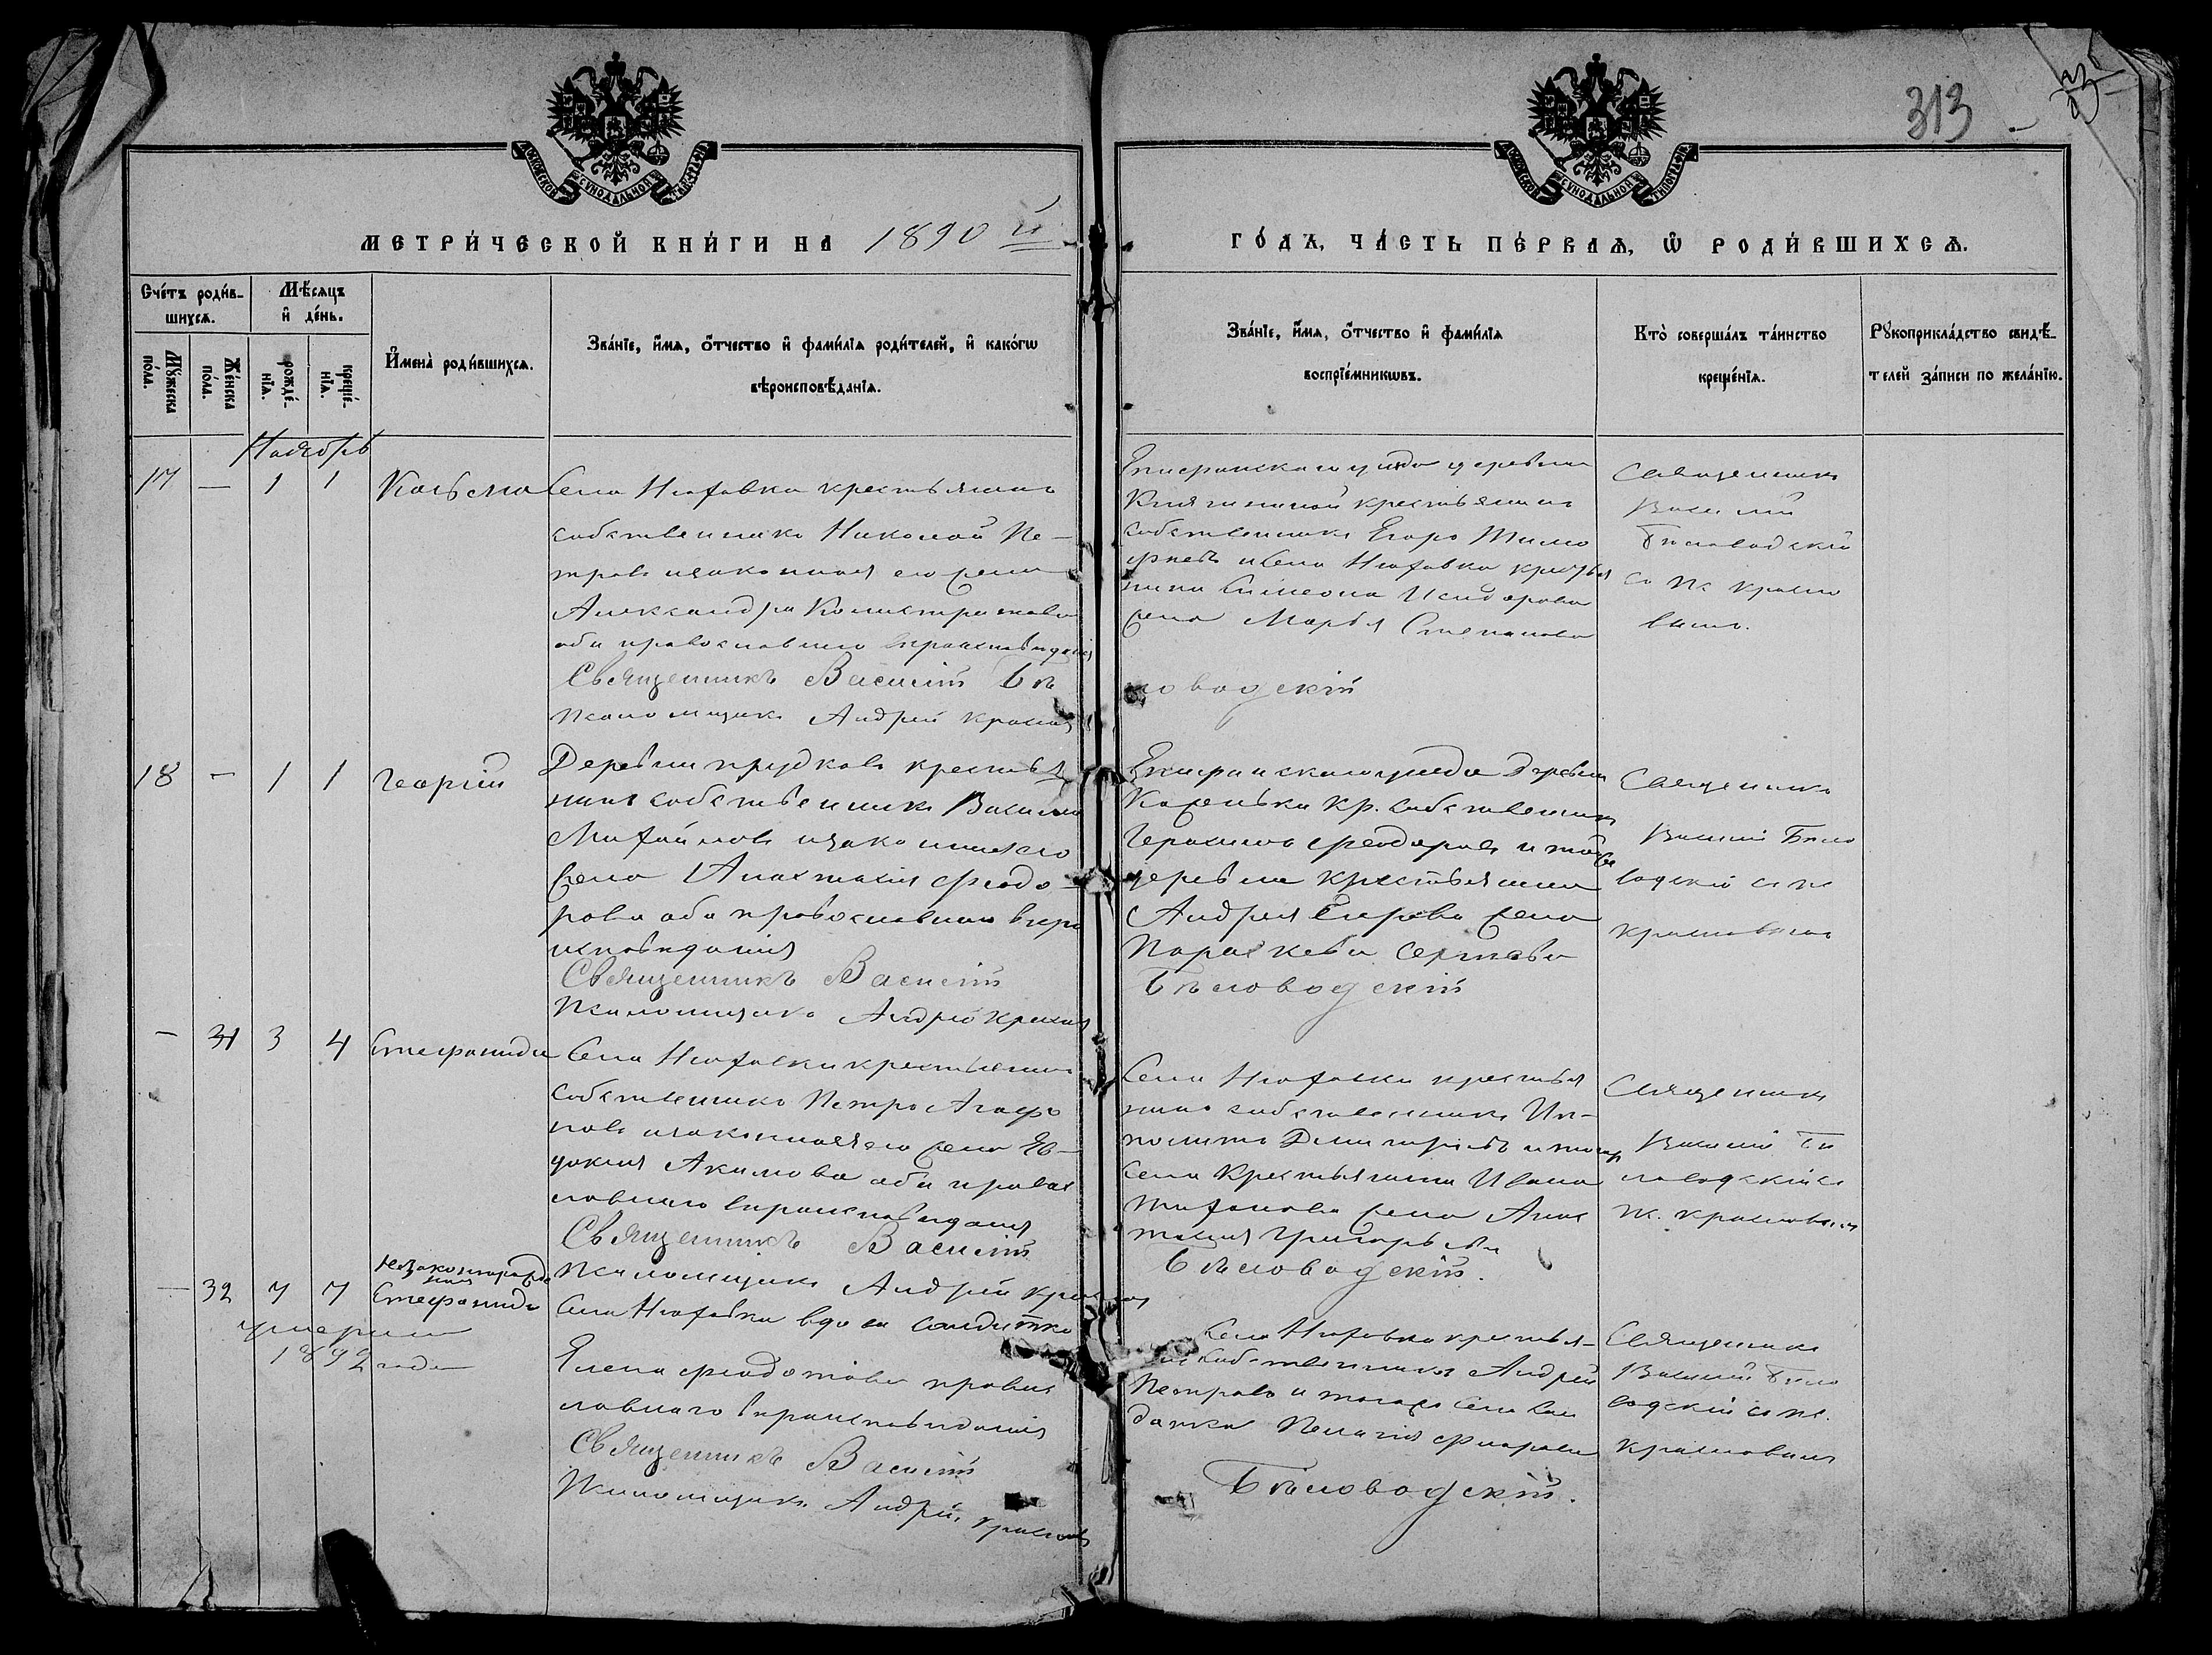 313
МОСКОВСКОЙ СѴНОДАЛЬНОЙ ТИПОГРАФІИ
МОСКОВСКОЙ СѴНОДАЛЬНОЙ ТИПОГРАФІИ
МЕТРИ́ЧЕСКОЙ КНИ́ГИ НА 1890 й
ГО́ДЪ, ЧА́СТЬ ПЕ́РВАѦ, Ѡ РОДИ́ВШИХСѦ.
Счéтъ роди́в-
шихсѧ.
Мѣ́сѧцъ
и҆ де́нь.
Мꙋ́жеска
по́ла.
Же́нска
по́ла.
рожде́-
нїѧ.
креще́-
нїѧ.
И҆мена̀ роди́вшихсѧ.
Зва́нїе, и҆́мѧ, ѻ҆́тчество и҆ фами́лїѧ роди́телей, и҆ како́гѡ
вѣроисповѣ́данїѧ.
Зва́нїе, и҆́мѧ, ѻ҆́тчество и҆ фами́лїѧ
воспрїе́мникѡвъ.
Кто̀ соверша́лъ та́инство
креще́нїѧ.
Рꙋкоприкла́дство свидѣ́-
телей за́писи по жела́нїю.
Ноябрь
17 — 1 1 Косьма
Села Нюховки крестьянинъ
собственникъ Николай Пе-
тровъ и законная его жена
Александра
оба православнаго вероисповеданія
Священникъ Василій Бѣ
Псаломщикъ Андрей
Епифанскаго уезда деревни
крестьянинъ
собственникъ Егоръ Тимо
феевъ и села Нюховки крестья
нина Симеона Исидорова
жена Марья Степанова
ловодскій
Священникъ
Василій
Беловодскій
съ пс.
18 — 1 1 Георгій
Деревни Прудковъ крестья
нинъ собственникъ Василій
Михайловъ и законная его
жена Анастасія Феодо-
рова оба православнаго веро
исповеданія
Священникъ Василій
Псаломщикъ Андрей
Епифанскаго уезда деревни
кр. собственникъ
Герасимъ Феодоровъ и той же
деревни крестьянина
Андрея Егорова жена
Параскева Сергеева
Бѣловодскій
Священникъ
Василій Бело
водскій съ пс.
— 31 3 4 Стефанида
Села Нюховки крестьянинъ
собственникъ Петръ Агафо
новъ и законная его жена Ев-
докия Акимова оба правос
лавнаго вероисповеданія
Священникъ Василій
Псаломщикъ Андрей
Села Нюховки крестья
нинъ собственникъ Ип-
политъ Димитріевъ и того же
села крестьянина Ивана
Тихонова жена Анас
тасия Григорьева
Бѣловодскій.
Священникъ
Василій Бе
ловодскій съ
пс.
незаконнорожден
ная
— 32 7 7 Стефанида
умерша
1892 года
Села Нюховки вдова солдатка
Елена Феодотова правос
лавнаго вероисповеданія
Священникъ Василій
Псаломщикъ Андрей
Села Нюховки крестья-
нинъ собственникъ Андрей
Петровъ и того же села сол
датка Пелагия Флорова
Бѣловодскій.
Священникъ
Василій Бело
водскій съ пс.